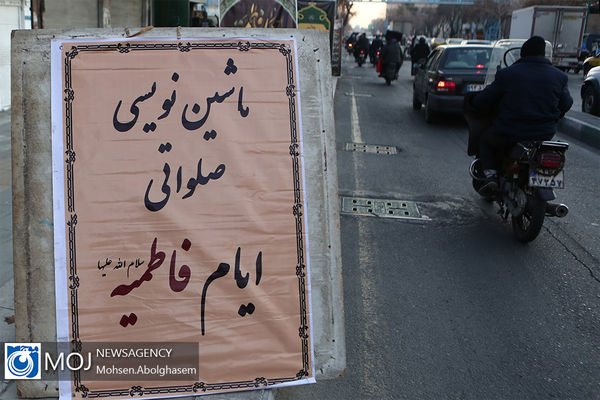 ماشین نویسی
صلواتی
ایام فاطمیه سلام الله علیها
MOJ NEWSAGENCY
Mohsen.Abolghasem